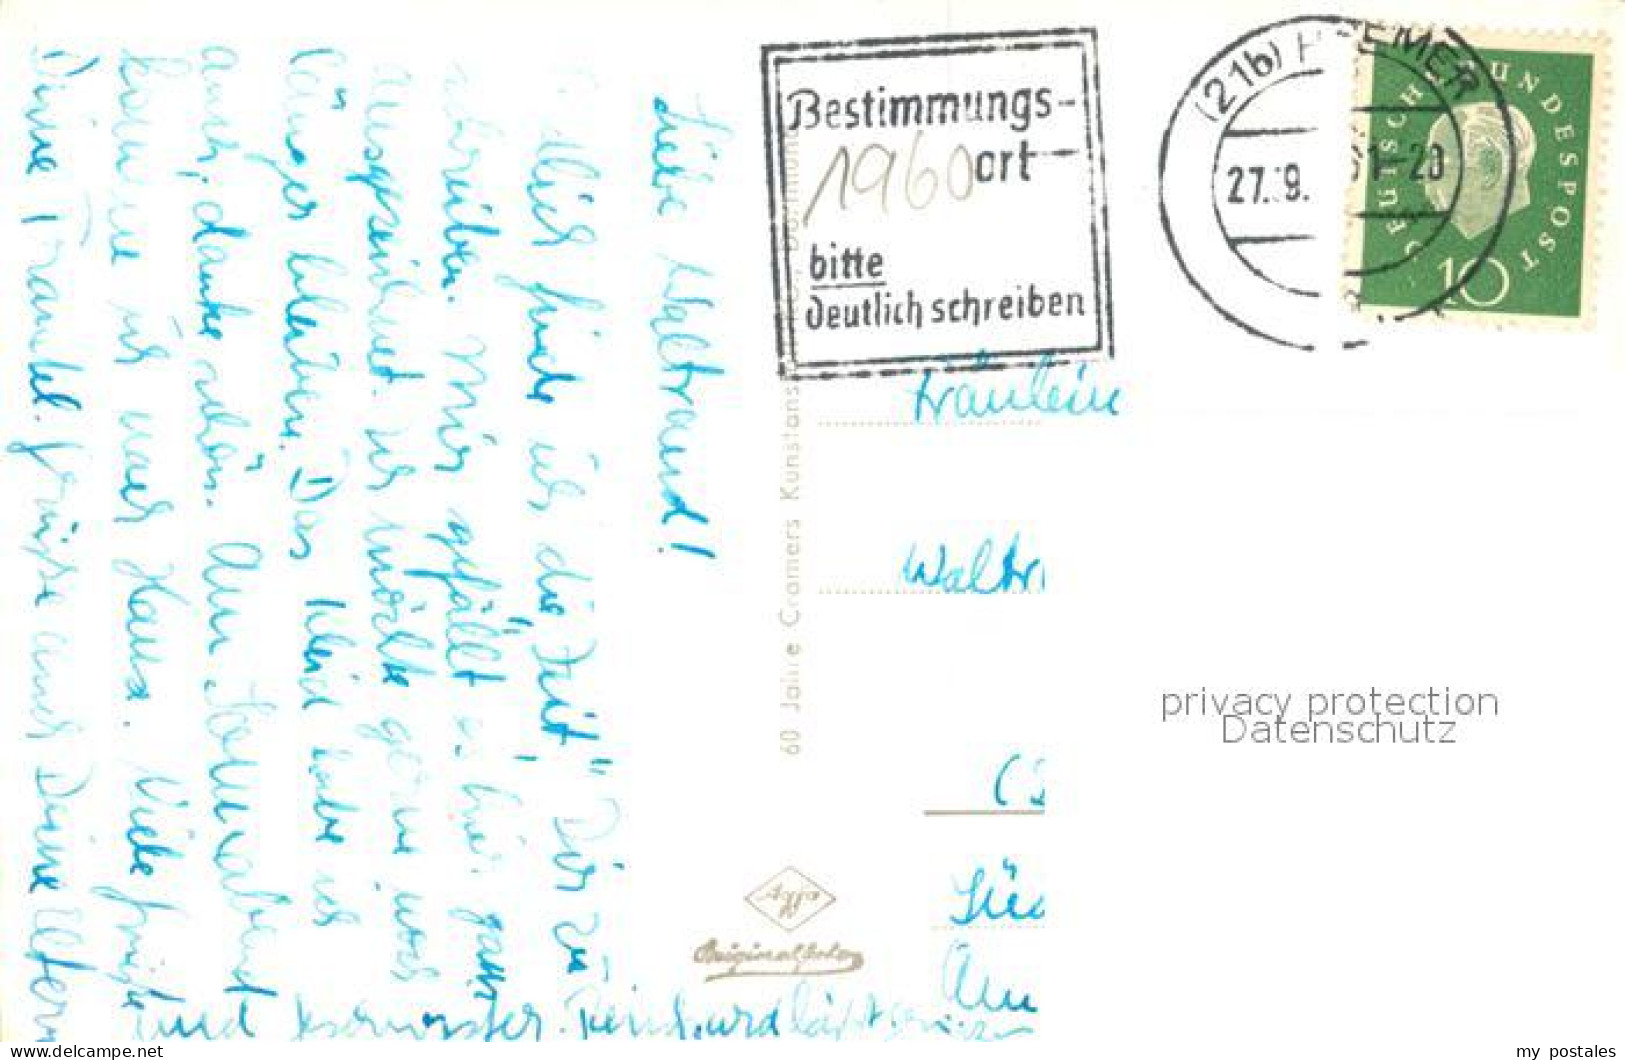 Liebe Waltraud!
Endlich finde ich die Zeit, Dir zu
schreiben. Mir gefällt es hier ganz
ausgezeichnet. Ich möchte gerne noch
länger bleiben. Das Kleid habe ich
auch, danke schön. Am Sonnabend
komme ich nach Haus. Viele Grüße
Deine Trautel. Grüße auch Deine Eltern
und Geschwister. Reinhard läßt
Bestimmungs-
ort
1960
bitte
deutlich schreiben
(21b) H EMER
27.9. 61-20
DEUTSCHE BUNDESPOST
10
Fräulein
Waltr
(2
Am
60 Jahre Cramers Kunstans Dortmund
Agfa
Originalfoto
privacy protection
Datenschutz
delcampe.net
my_postales